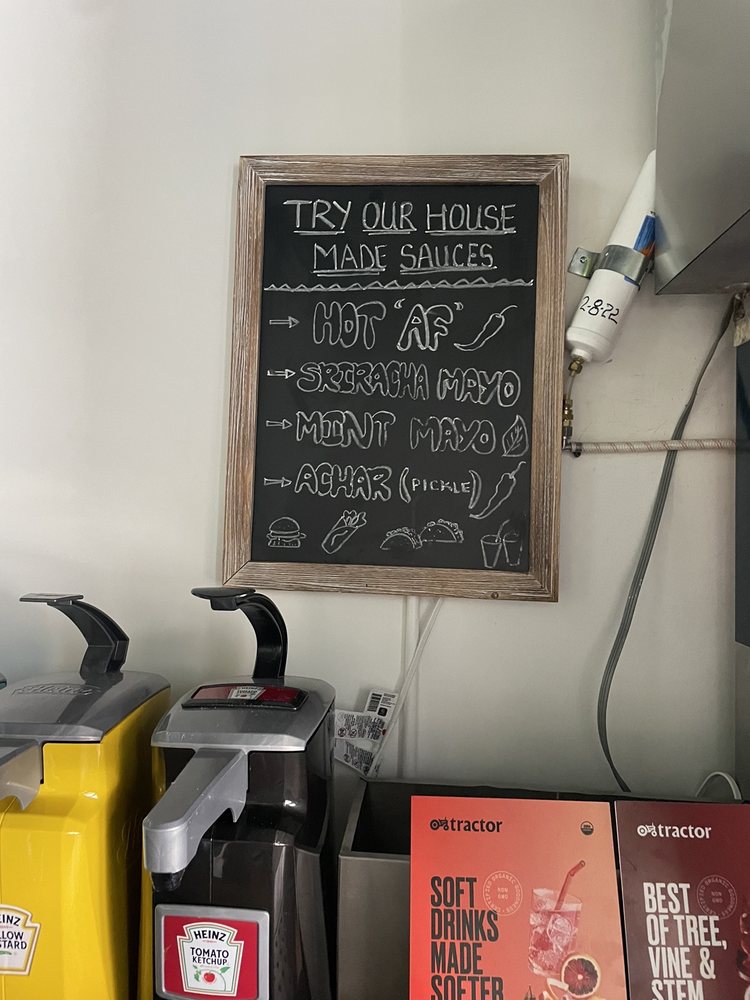 TRY OUR HOUSE
MADE SAUCES
HOT "AF"
SRIRACHA MAYO
MINT MAYO
ACHAR (PICKLE)
2-8-22
HEINZ
TOMATO
KETCHUP
tractor
SOFT
DRINKS
MADE
SOFTER
tractor
BEST
OF TREE,
VINE &
STEM